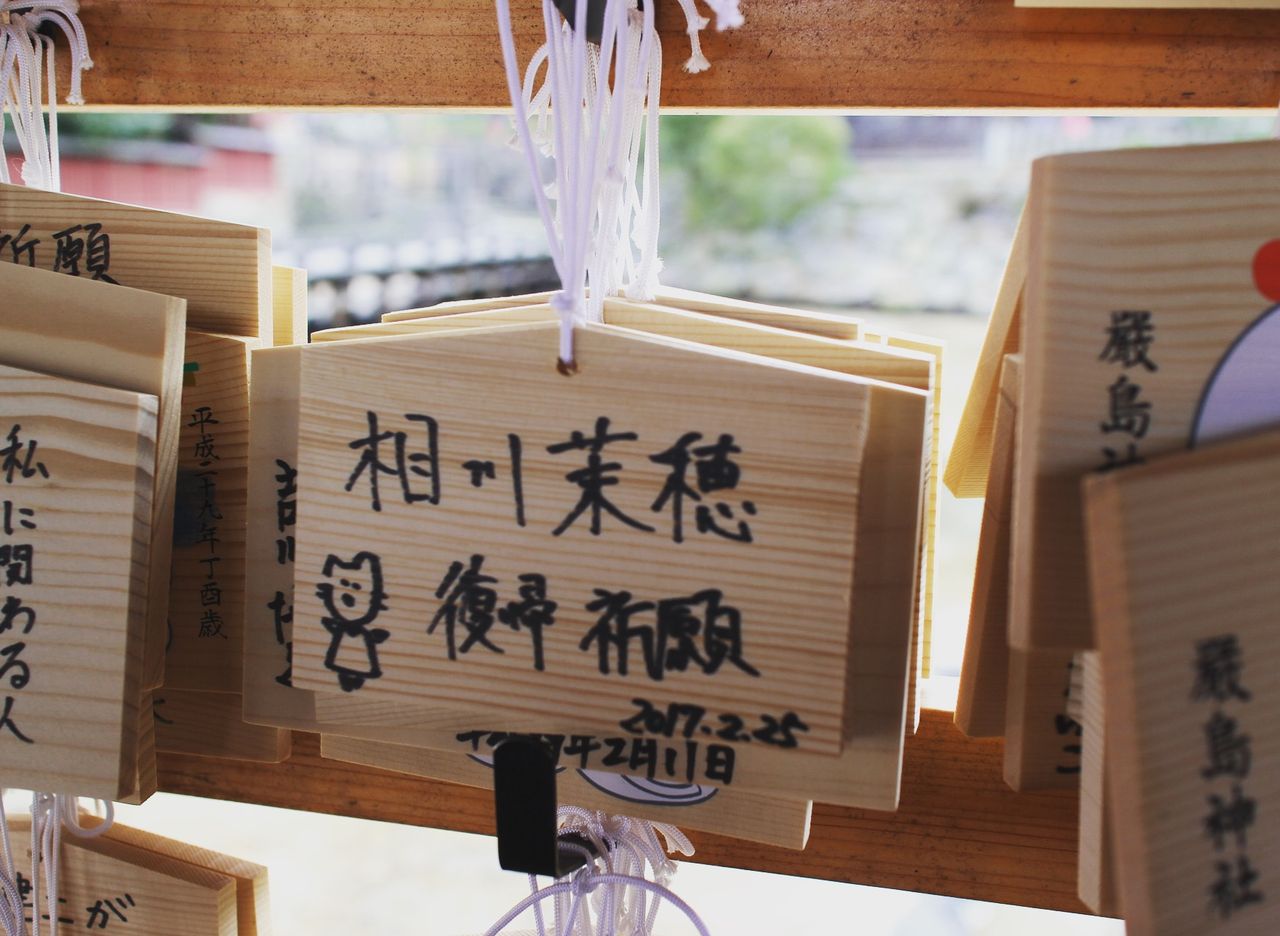 相川茉穂
復帰祈願
2017.2.25
年2月11日
祈願
平成二十九年丁酉歳
私に関わる人
厳島神
厳島神社
が